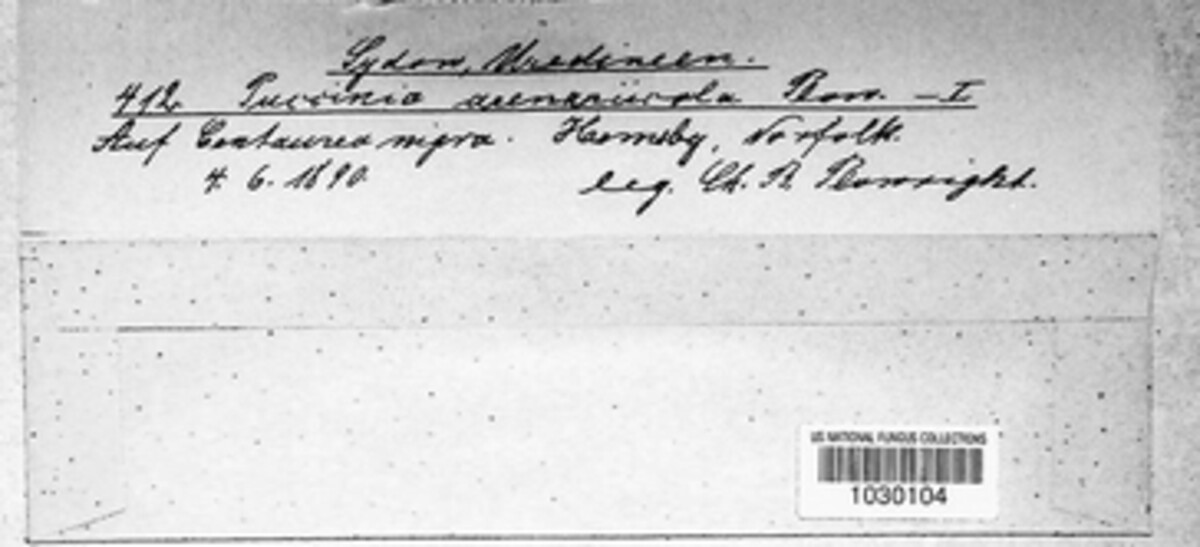 Sydow, Uredineen.
412. Puccinia arenariicola Plow. – I
Auf Centaurea nigra. Hemsby, Norfolk.
4. 6. 1890. leg. Ch. B. Plowright.
US NATIONAL FUNGUS COLLECTIONS
1030104